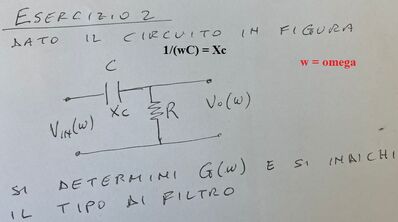 ESERCIZIO 2
DATO IL CIRCUITO IN FIGURA
1/(wC) = Xc
w = omega
C
Xc
R
VIN(w)
Vo(w)
SI DETERMINI G(w) E SI INDICHI
IL TIPO DI FILTRO